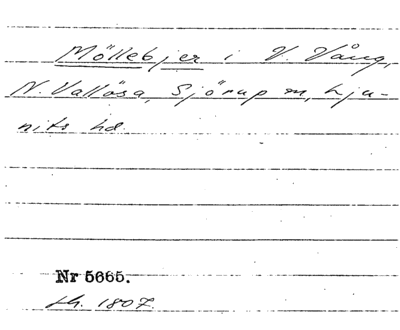 Möllebjer i V. Vång,
N. Vallösa, Sjörup m, Lju-
nits hd.
Nr 5665.
fh. 1807.